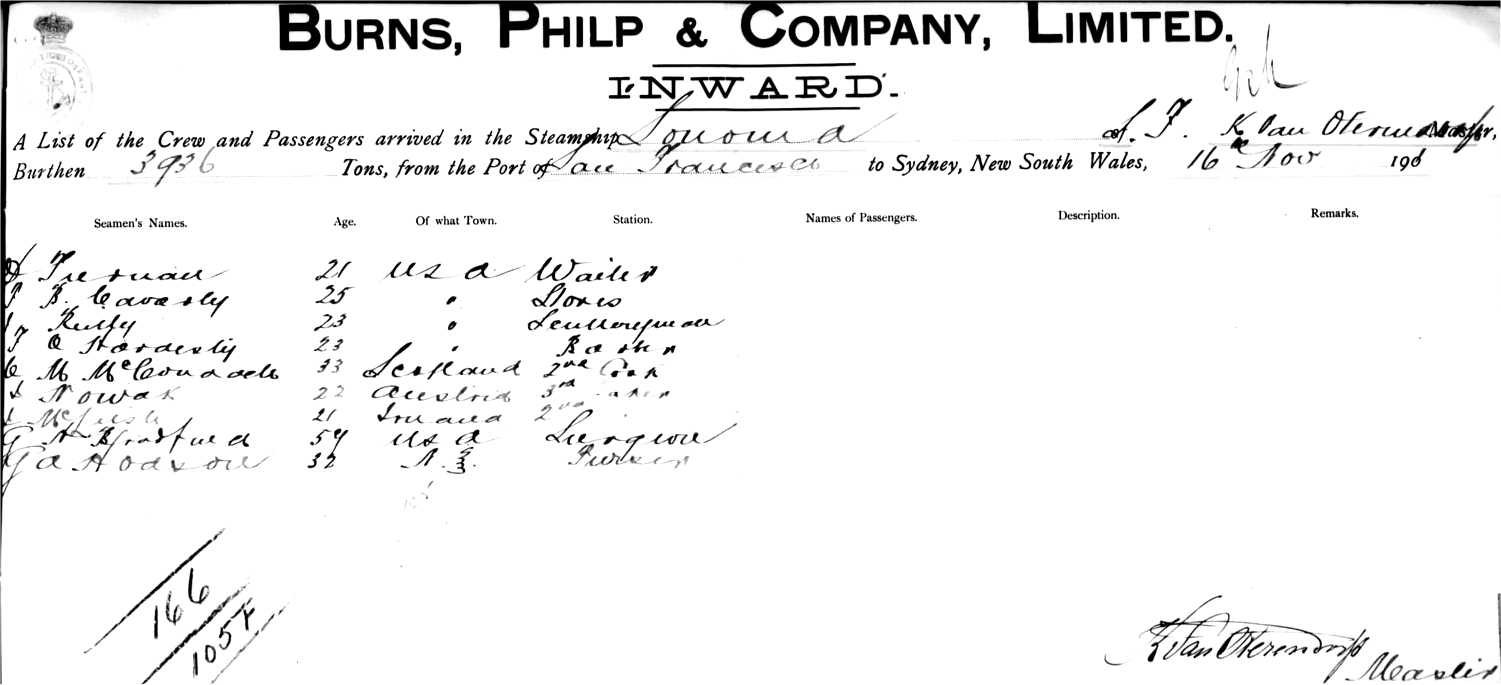 BURNS, PHILP & COMPANY, LIMITED.
INWARD.
A List of the Crew and Passengers arrived in the Steamship Sonoma of S. F. K Van Oterendorp Master,
Burthen 3936 Tons, from the Port of San Francisco to Sydney, New South Wales, 16th Nov 190
Seamen's Names. Age. Of what Town. Station. Names of Passengers. Description. Remarks.
Tiernan 21 U S A Waiter
B. Caverly 25 " Stores
Reilly 23 " Sculleryman
O Hardesty 23 " Baker
C M 33 Scotland 2nd Cook
Nowak 22 Austria 3rd
21 2nd
G A Bradfield 59 U S A Surgeon
G A Hodson 32 N. Z. Purser
166
1057
K Van Oterendorp
Master